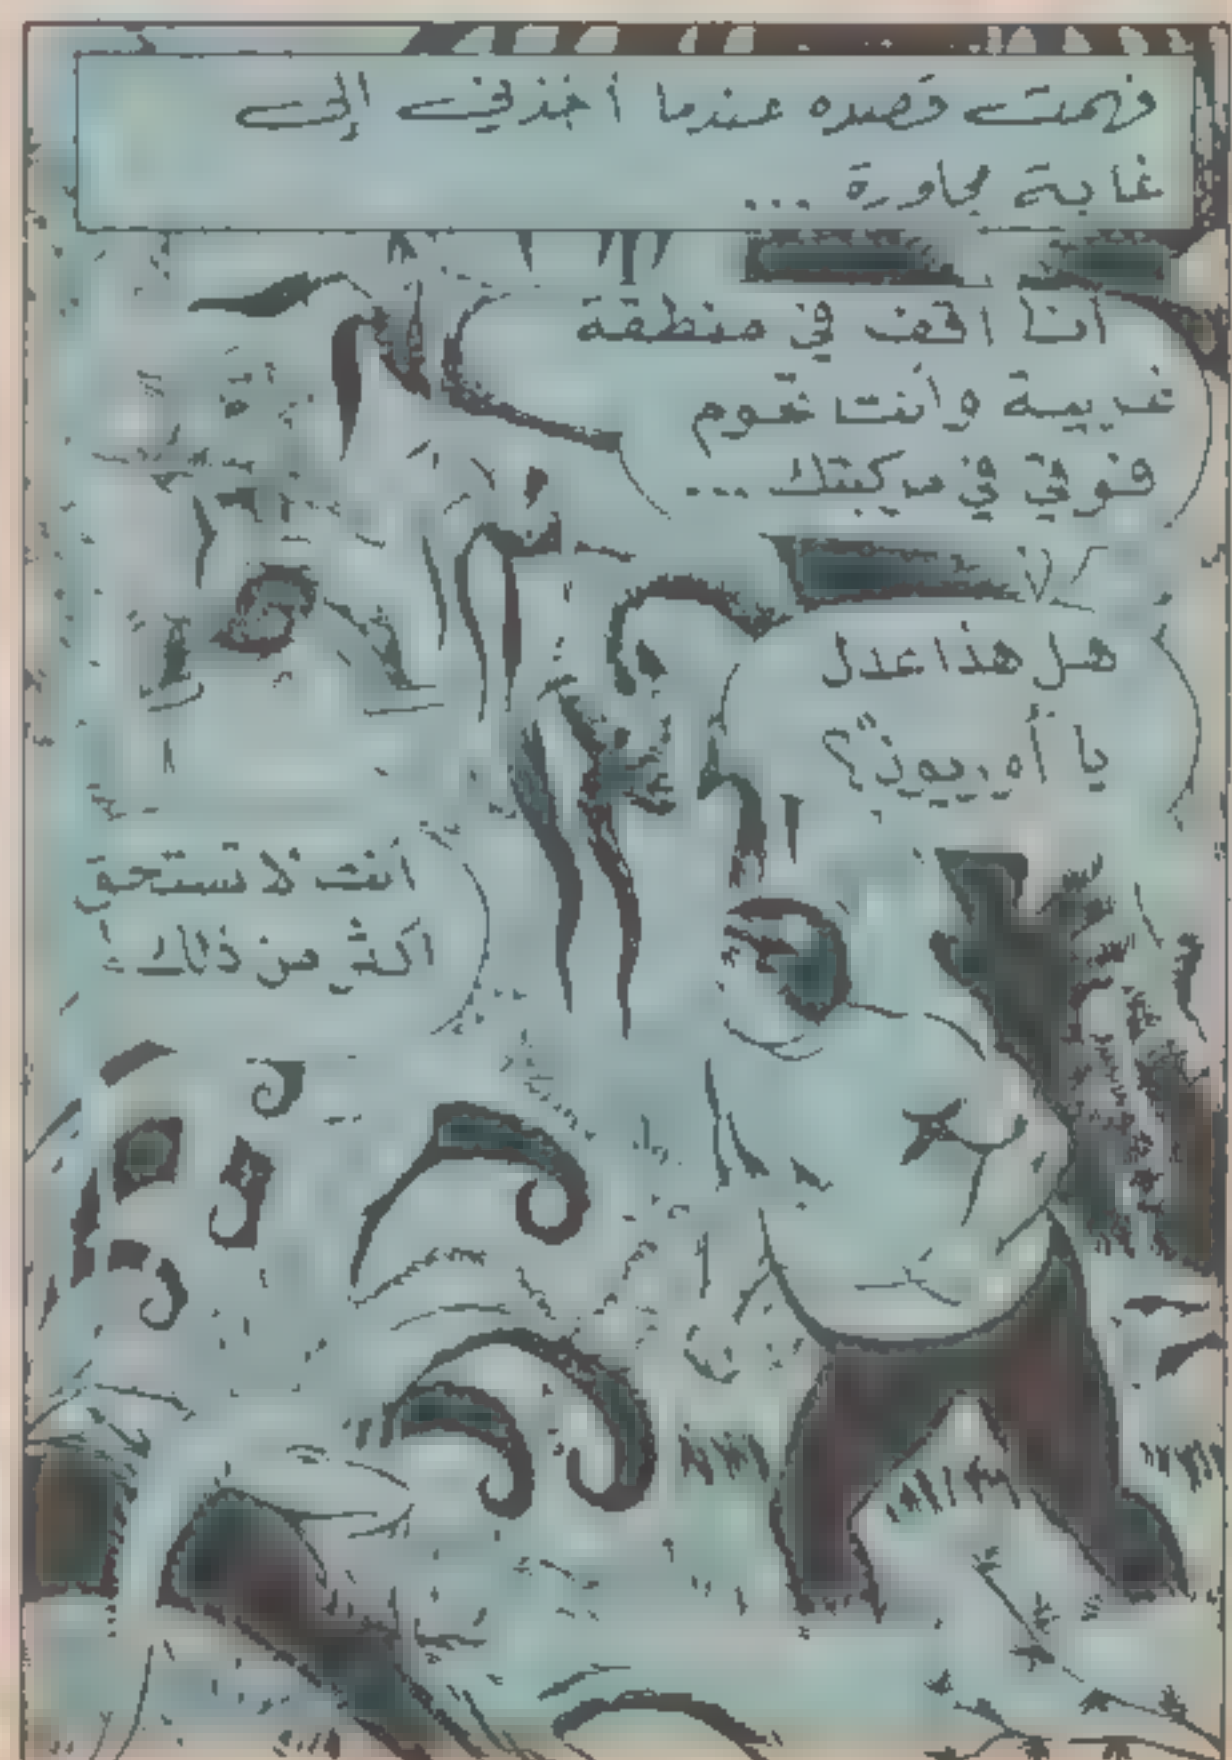 فهمت قصده عندما أخذني إلى
غابة مجاورة ...
أنا أقف في منطقة
غريبة وأنت تحوم
فوقي في مركبتك ...
هل هذا عدل
يا أوريون؟
أنت لا تستحق
اكثر من ذلك.